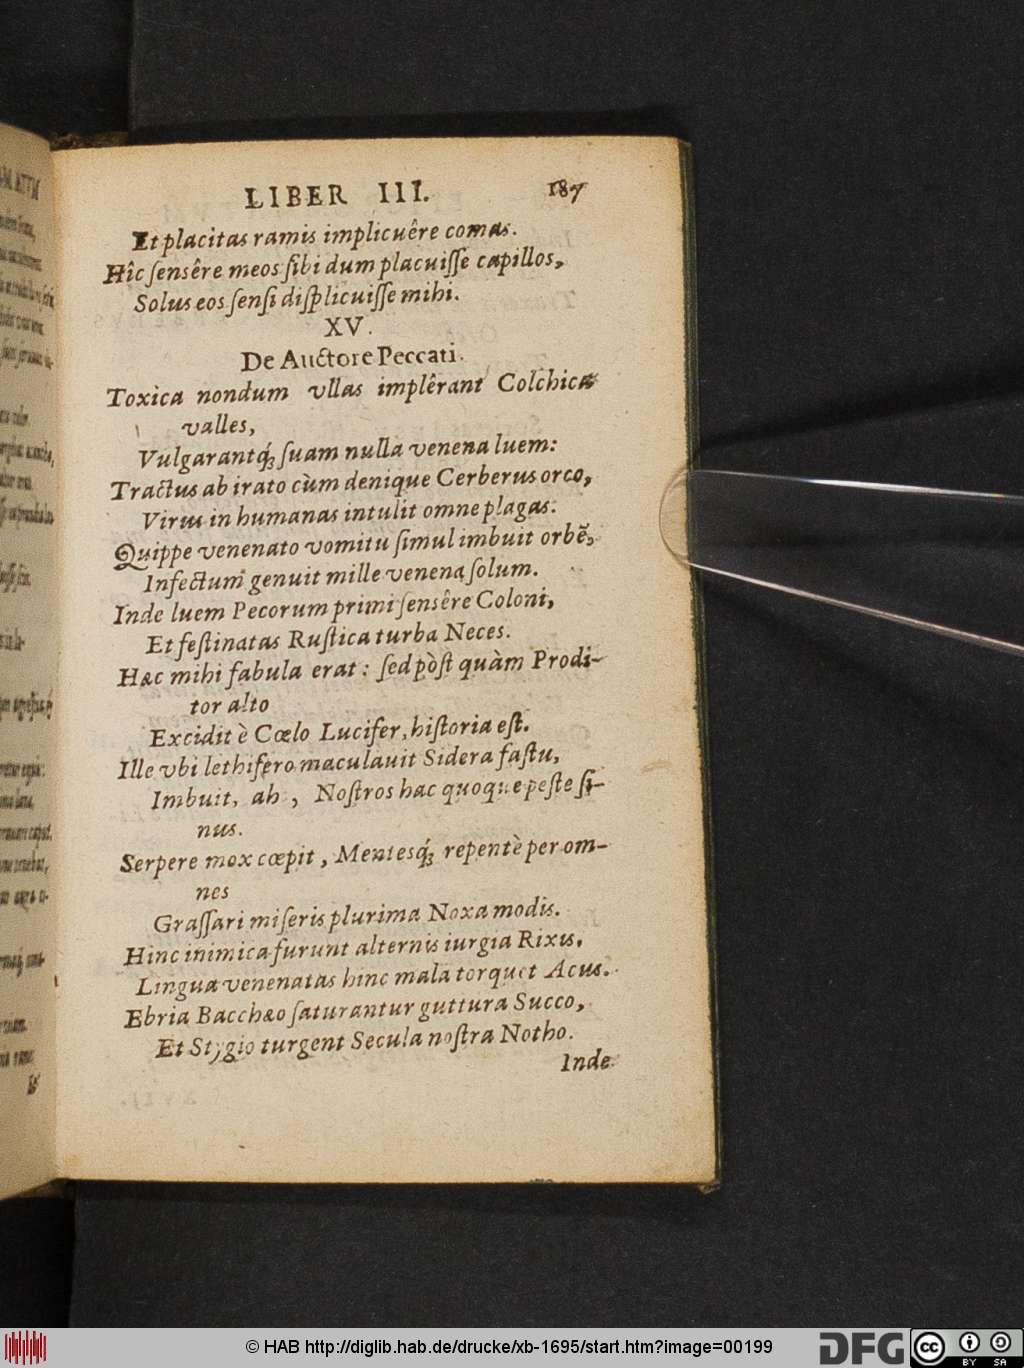 LIBER III. 187
Et placitas ramis implicuêre comas.
Hîc ſensêre meos ſibi dum placuiſſe capillos,
Solus eos ſenſi diſplicuiſſe mihi.
XV.
De Auctore Peccati.
Toxica nondum vllas implêrant Colchicas
valles,
Vulgarantq́; ſuam nulla venena luem:
Tractus ab irato cùm denique Cerberus orco,
Virus in humanas intulit omne plagas.
Quippe venenato vomitu ſimul imbuit orbẽ,
Infectum genuit mille venena ſolum.
Inde luem Pecorum primi ſensêre Coloni,
Et feſtinatas Ruſtica turba Neces.
Hæc mihi fabula erat: ſed pòſt quàm Prodi-
tor alto
Excidit è Cœlo Lucifer, hiſtoria eſt.
Ille vbi lethifero maculauit Sidera faſtu,
Imbuit, ah, Noſtros hac quoque peſte ſi-
nus.
Serpere mox cœpit, Mentesq́; repentè per om-
nes
Graſſari miſeris plurima Noxa modis.
Hinc inimica furunt alternis iurgia Rixis.
Lingua venenatas hinc mala torquet Acus.
Ebria Bacchæo ſaturantur guttura Succo,
Et Stygio turgent Secula noſtra Notho.
Inde
© HAB http://diglib.hab.de/drucke/xb-1695/start.htm?image=00199
DFG
cc BY SA